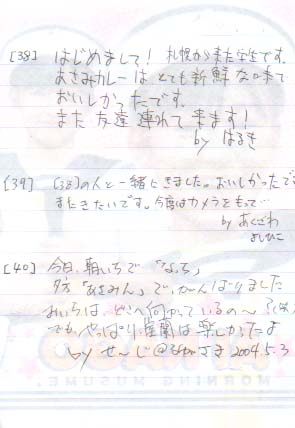 [38] はじめまして！ 札幌から来た学生です。
あさみカレーは とても新鮮な味で
おいしかったです。
また 友達連れて 来ます！
by はるき
[39] [38]の人と一緒にきました。おいしかったです
またきたいです。今度はカメラをもって…
by あくざわ
よしひこ
[40] 今日、朝いちで「なっち」
夕方「あさみん」で、がんばりました
おいらは、どこへ向かっているの〜
でも、やっぱり室蘭は楽しかったよ
by せ〜じ@ さま 2004.5.3
MORNING MUSUME.